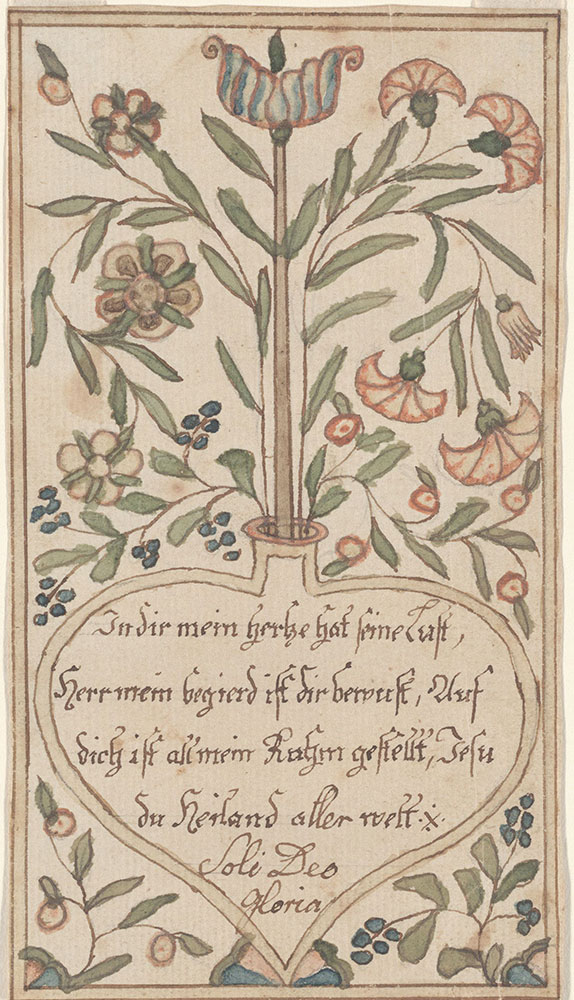 In dir mein hertze hat seine Lust,
Herr mein begierd ist dir bewust, Auf
dich ist all mein Ruhm gestellt, Jesu
du Heiland aller welt
Soli Deo
Gloria